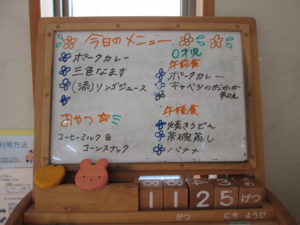 今日のメニュー
ポークカレー
三色なます
(添)リンゴジュース
おやつ
コーヒーミルク &
コーンスナック
0才児
午前食
ポークカレー
キャベツのおかか
午後食
焼きうどん
茶碗蒸し
バナナ
11 25 げつ
がつ にち ようび
利用方法